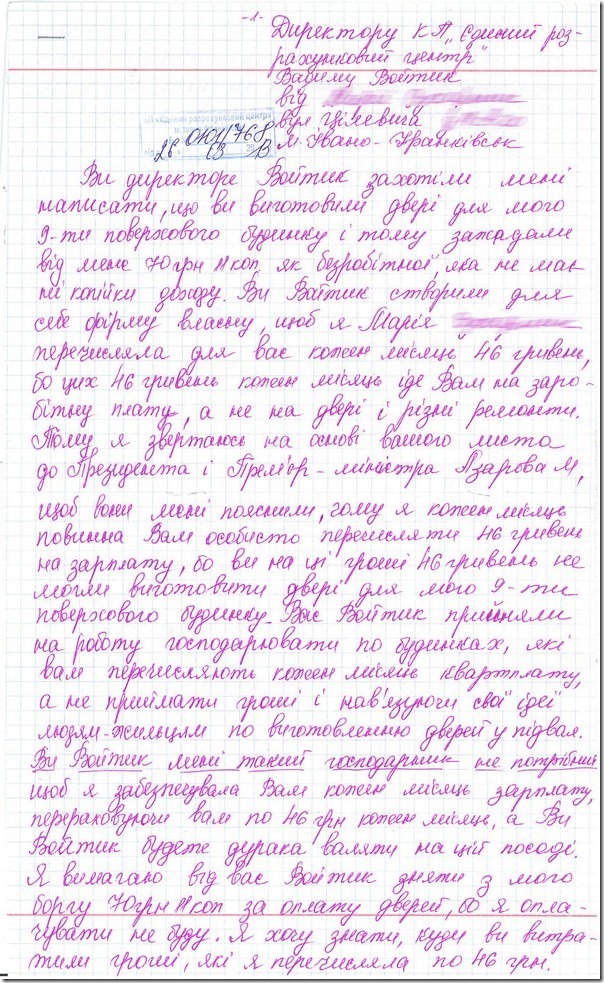 -1-
Директору КП „Єдиний роз-
рахунковий центр"
Вадиму Войтик
від
вул Ціпевича
м. Івано-Франківськ
Єдиний розрахунковий центр
26 13
Ви директоре Войтик захотіли мені
написати, що ви виготовили двері для мого
9-ти поверхового будинку і тому зажадали
від мене 70 грн 11 коп, як безробітної, яка не має
ні копійки доходу. Ви Войтик створили для
себе фірму власну, щоб я Марія
перечисляла для вас кожен місяць 46 гривень,
бо цих 46 гривень кожен місяць іде Вам на заро-
бітну плату, а не на двері і різні ремонти.
Тому я звертаюсь на основі вашого листа
до Президента і Прем'єр-міністра Азарова М,
щоб вони мені пояснили, чому я кожен місяць
повинна Вам особисто перечисляти 46 гривень
на зарплату, бо ви на ці гроші 46 гривень не
могли виготовити двері для мого 9-ти
поверхового будинку. Вас Войтик прийняли
на роботу господарювати по будинках, які
вам перечисляють кожен місяць квартплату,
а не приймати гроші і нав'язуючи свої ідеї
людям-жильцям по виготовленню дверей у підвал.
Ви Войтик мені такий господарник не потрібний
щоб я забезпечувала Вам кожен місяць зарплату,
перераховуючи вам по 46 грн кожен місяць, а Ви
Войтик будете дурака валяти на цій посаді.
Я вимагаю від вас Войтик зняти з мого
боргу 70 грн 11 коп за оплату дверей, бо я опла-
чувати не буду. Я хочу знати, куди ви витра-
тили гроші, які я перечисляла по 46 грн.